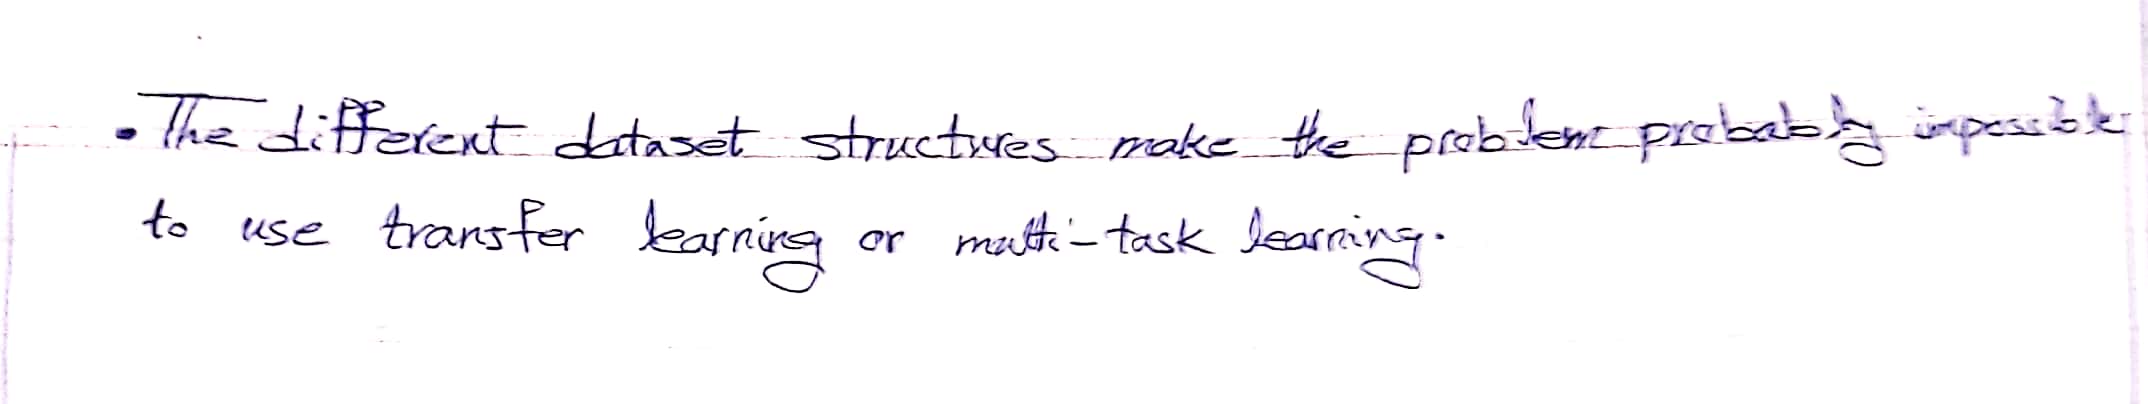 • The different dataset structures make the problem probably impossible
to use transfer learning or multi-task learning.